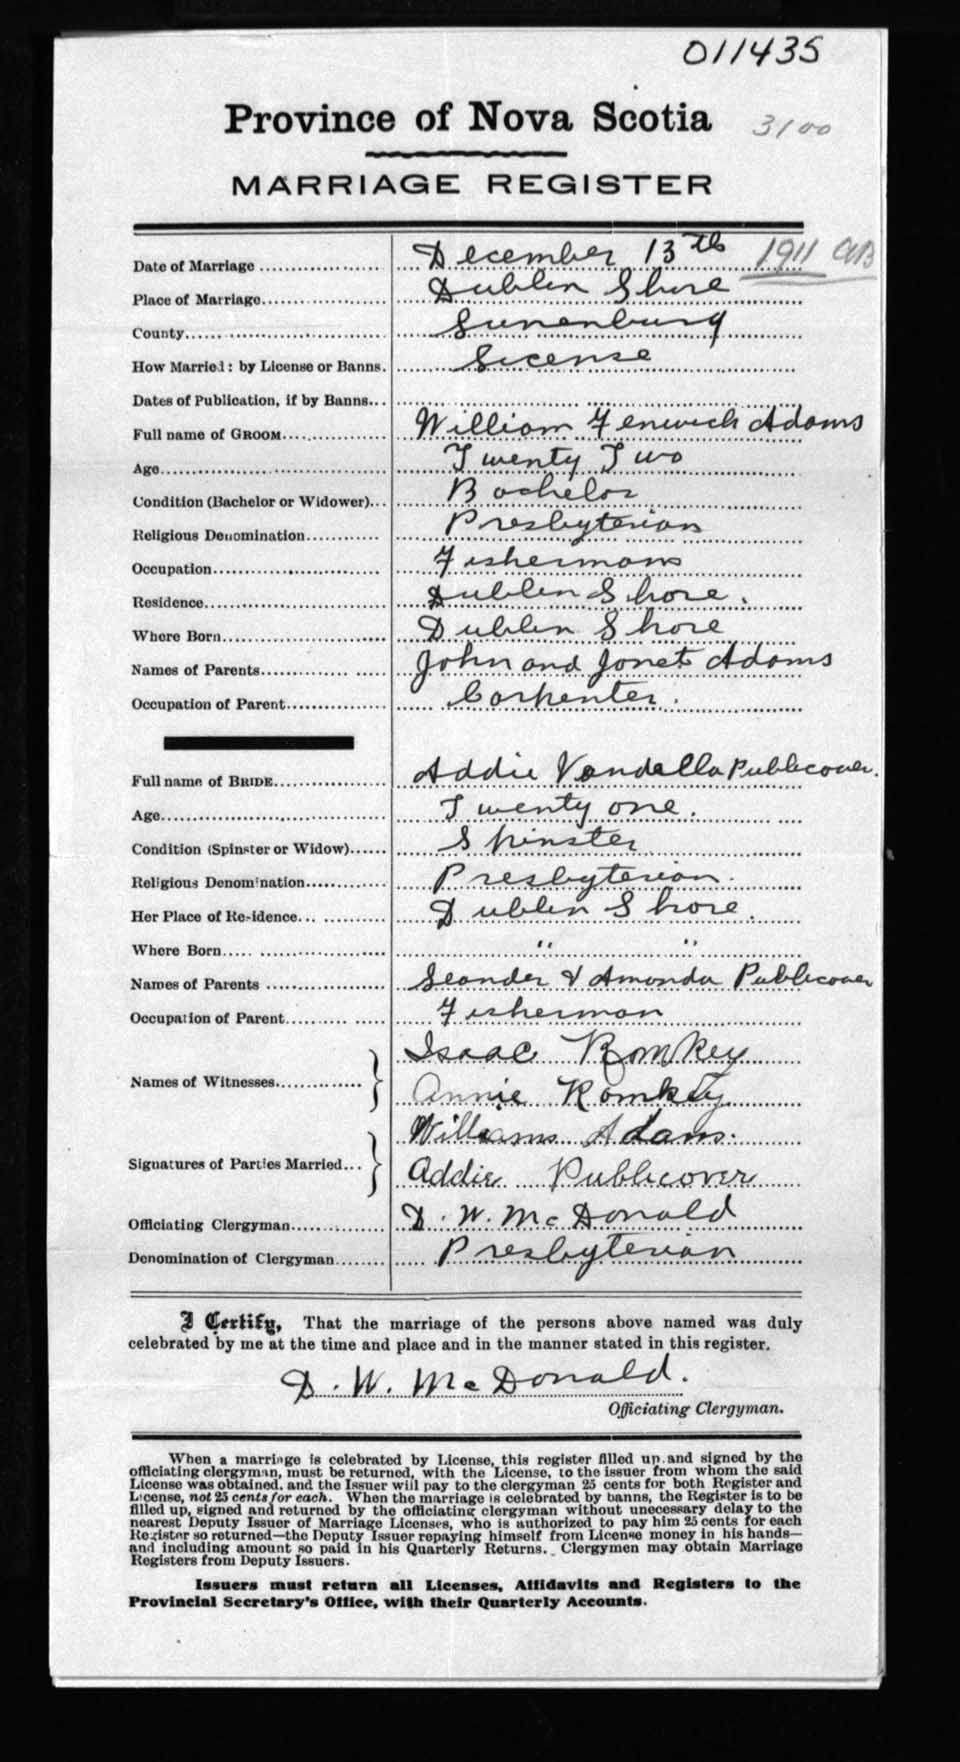 011435
Province of Nova Scotia 3100
MARRIAGE REGISTER
Date of Marriage December 13th 1911
Place of Marriage Dublin Shore
County Lunenburg
How Married: by License or Banns. License
Dates of Publication, if by Banns
Full name of GROOM William Fenwick Adams
Age Twenty Two
Condition (Bachelor or Widower) Bachelor
Religious Denomination Presbyterian
Occupation Fisherman
Residence Dublin Shore.
Where Born Dublin Shore
Names of Parents John and Janet Adams
Occupation of Parent Carpenter.
Full name of BRIDE Addie Vandella Publicover.
Age Twenty one.
Condition (Spinster or Widow) Spinster
Religious Denomination Presbyterian.
Her Place of Residence Dublin Shore.
Where Born " "
Names of Parents Leander & Amanda Publicover
Occupation of Parent Fisherman
Names of Witnesses Isaac Romkey
Annie Romkey
Signatures of Parties Married Williams Adams.
Addie Publicover
Officiating Clergyman D. W. McDonald
Denomination of Clergyman Presbyterian
I Certify, That the marriage of the persons above named was duly
celebrated by me at the time and place and in the manner stated in this register.
D. W. McDonald.
Officiating Clergyman.
When a marriage is celebrated by License, this register filled up and signed by the
officiating clergyman, must be returned, with the License, to the issuer from whom the said
License was obtained, and the Issuer will pay to the clergyman 25 cents for both Register and
License, not 25 cents for each. When the marriage is celebrated by banns, the Register is to be
filled up, signed and returned by the officiating clergyman without unnecessary delay to the
nearest Deputy Issuer of Marriage Licenses, who is authorized to pay him 25 cents for each
Register so returned—the Deputy Issuer repaying himself from License money in his hands—
and including amount so paid in his Quarterly Returns. Clergymen may obtain Marriage
Registers from Deputy Issuers.
Issuers must return all Licenses, Affidavits and Registers to the
Provincial Secretary's Office, with their Quarterly Accounts.